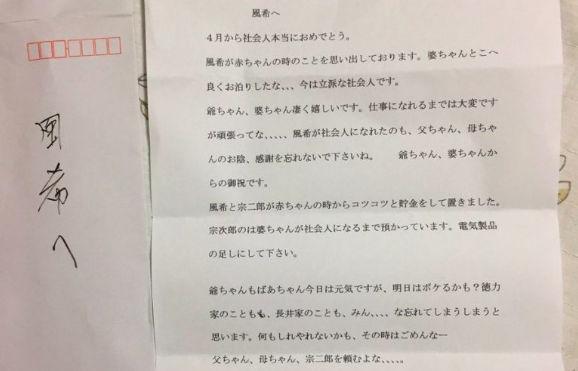 風希へ
風希へ
４月から社会人本当におめでとう。
風希が赤ちゃんの時のことを思い出しております。婆ちゃんとこへ
良くお泊りしたな､､､今は立派な社会人です。
爺ちゃん、婆ちゃん凄く嬉しいです。仕事になれるまでは大変です
が頑張ってな､､､､､風希が社会人になれたのも、父ちゃん、母ちゃ
んのお陰、感謝を忘れないで下さいね。　爺ちゃん、婆ちゃんか
らの御祝です。
風希と宗二郎が赤ちゃんの時からコツコツと貯金をして置きました。
宗次郎のは婆ちゃんが社会人になるまで預かっています。電気製品
の足しにして下さい。
爺ちゃんもばあちゃん今日は元気ですが、明日はボケるかも？徳力
家のことも、長井家のことも、みん､､､､な忘れてしまうしまうと
思います。何もしれやれないかも、その時はごめんなー
父ちゃん、母ちゃん、宗二郎を頼むよな､､､､。